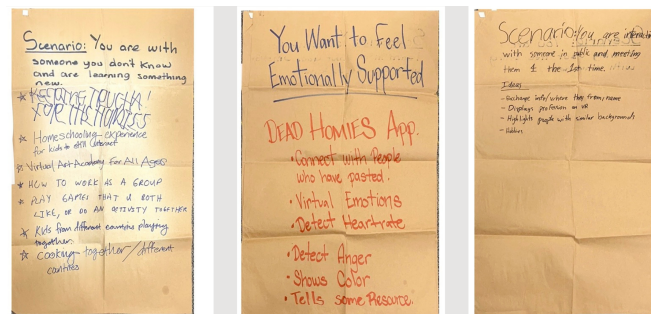 Scenario: You are with
someone you don't know
and are learning something
new.
FOR THE HOMIESS
Homeschooling experience
for kids to still interact
Virtual Art Academy For All Ages
HOW TO WORK AS A GROUP
PLAY GAMES THAT U BOTH
LIKE, OR DO AN ACTIVITY TOGETHER
Kids from different countries playing
together.
Cooking together / different
You Want to Feel
Emotionally Supported
DEAD HOMIES App.
• Connect with People
who have pasted.
• Virtual Emotions
• Detect Heartrate
• Detect Anger
• Shows Color
• Tells some Resource.
Scenario: You are
with someone in public and meeting
them 1 the 1st time.
Ideas
- Exchange info/where they from, name
- Displays profession on VR
- Highlights people with similar backgrounds
- Hobbies